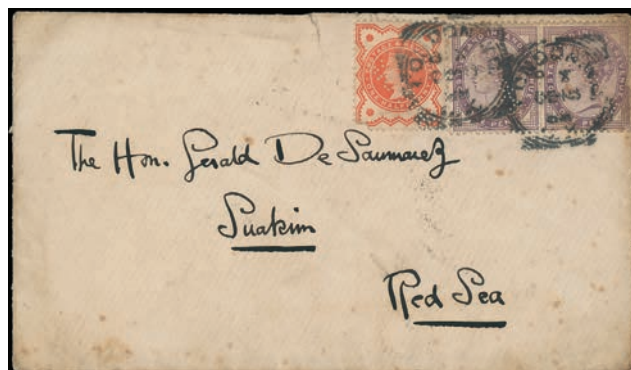 The Hon. Gerald De Saumarez
Suakim
Red Sea